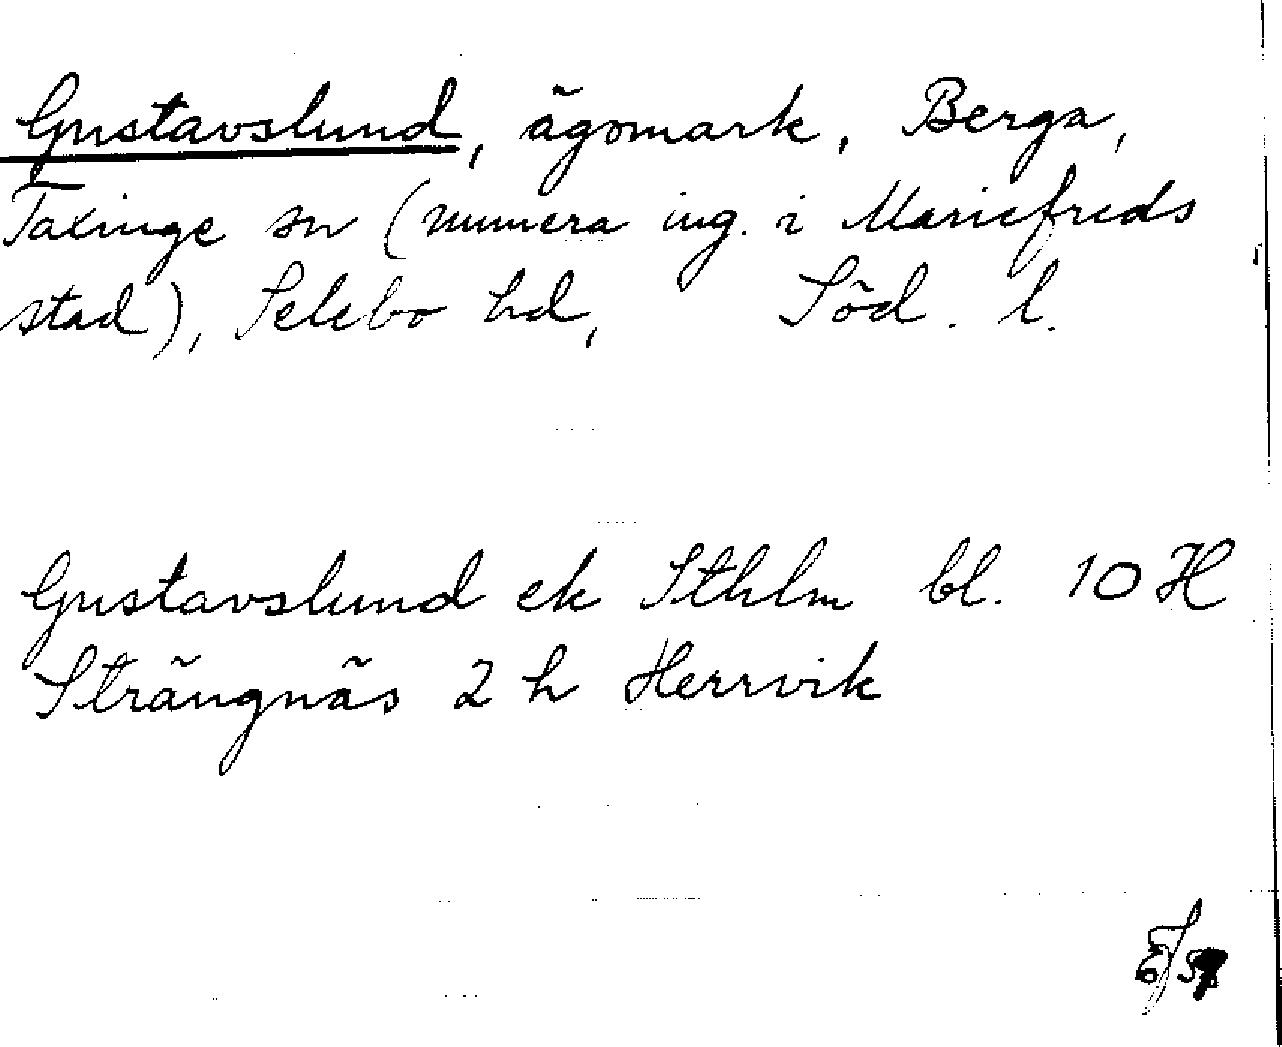 Gustavslund, ägomark, Berga,
Taxinge sn (numera ing. i Mariefreds
stad), Selebo hd, Söd. l.
Gustavslund ek Sthlm bl. 10 H
Strängnäs 2 h Herrvik